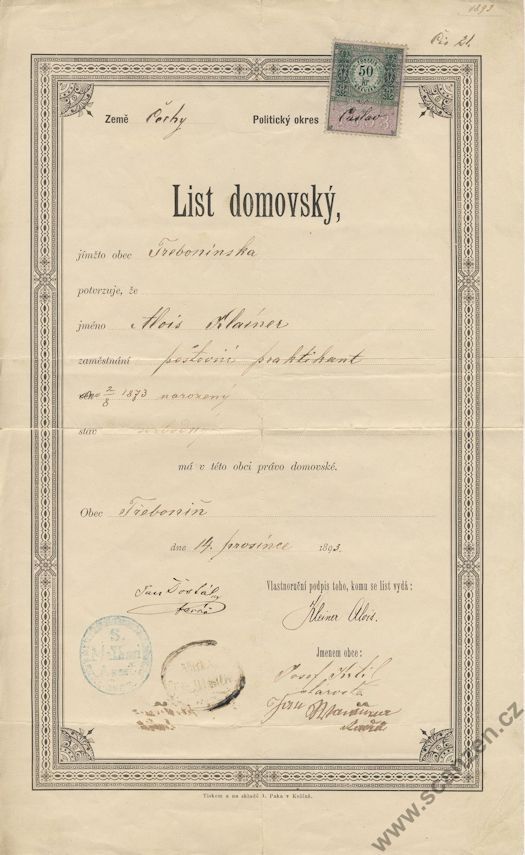 1893
Čís 21.
50
Země Čechy Politický okres Čáslav
List domovský,
jímžto obec Třebonínská
potvrzuje, že
jméno Alois Klainer
zaměstnání poštovní praktikant
dne 2/8 1873 narozený
stav
má v této obci právo domovské.
Obec Třebonín
dne 14. prosince 1893.
Vlastnoruční podpis toho, komu se list vydá:
Jan Dostál
Kleiner Alois.
Jmenem obce:
Josef
starosta
S.
Jan
radní
Tiskem a na skladě A. Páka v Kolíně.
www.scanzen.cz